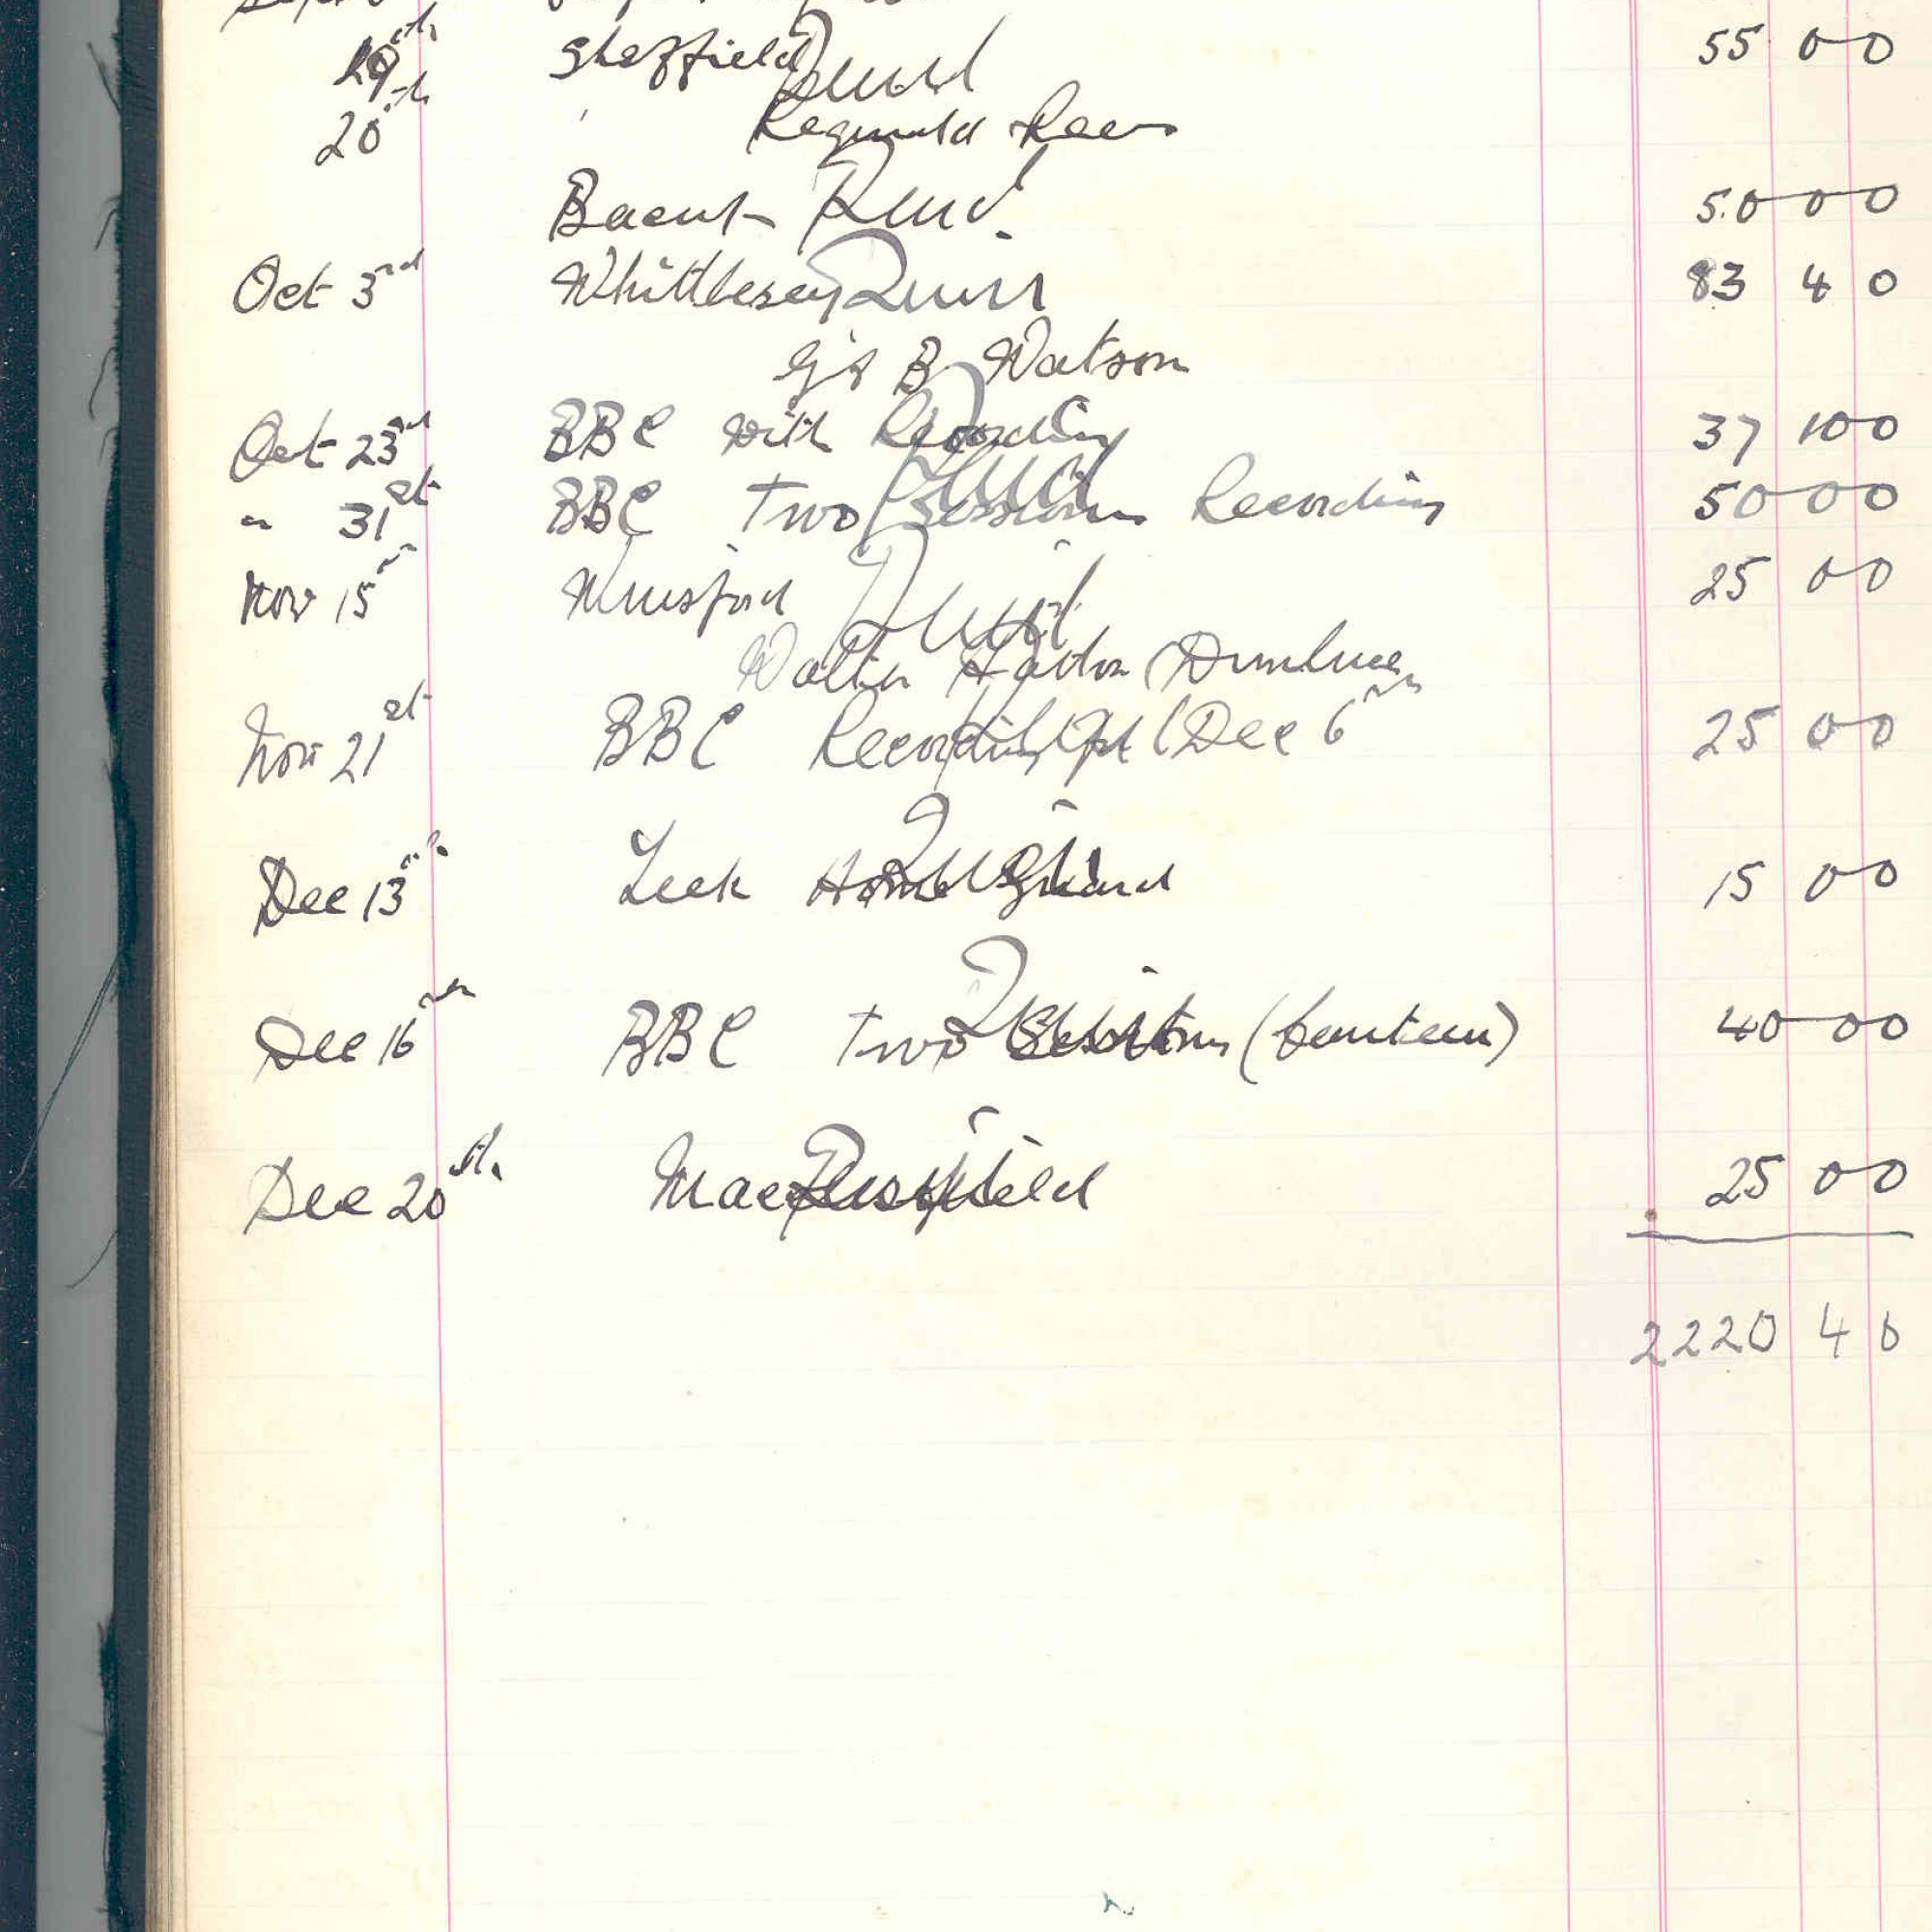 19th Sheffield Paid 55 0 0
20th Reginald Rees
Bacup Paid. 50 0 0
Oct 3rd Whittlesey Paid 83 4 0
B Watson
Oct 23rd BBC with Recording Paid 37 10 0
" 31st BBC Two Sessions Recording 50 0 0
Nov 15th Winsford Paid 25 0 0
Walter
Nov 21st BBC Recording for (Dec 6th 25 0 0
Dec 13th Leek Home Guard Paid 15 0 0
Dec 16th BBC Two Sessions (Canteen) Paid 40 0 0
Dec 20th Macclesfield Paid 25 0 0
2220 4 0